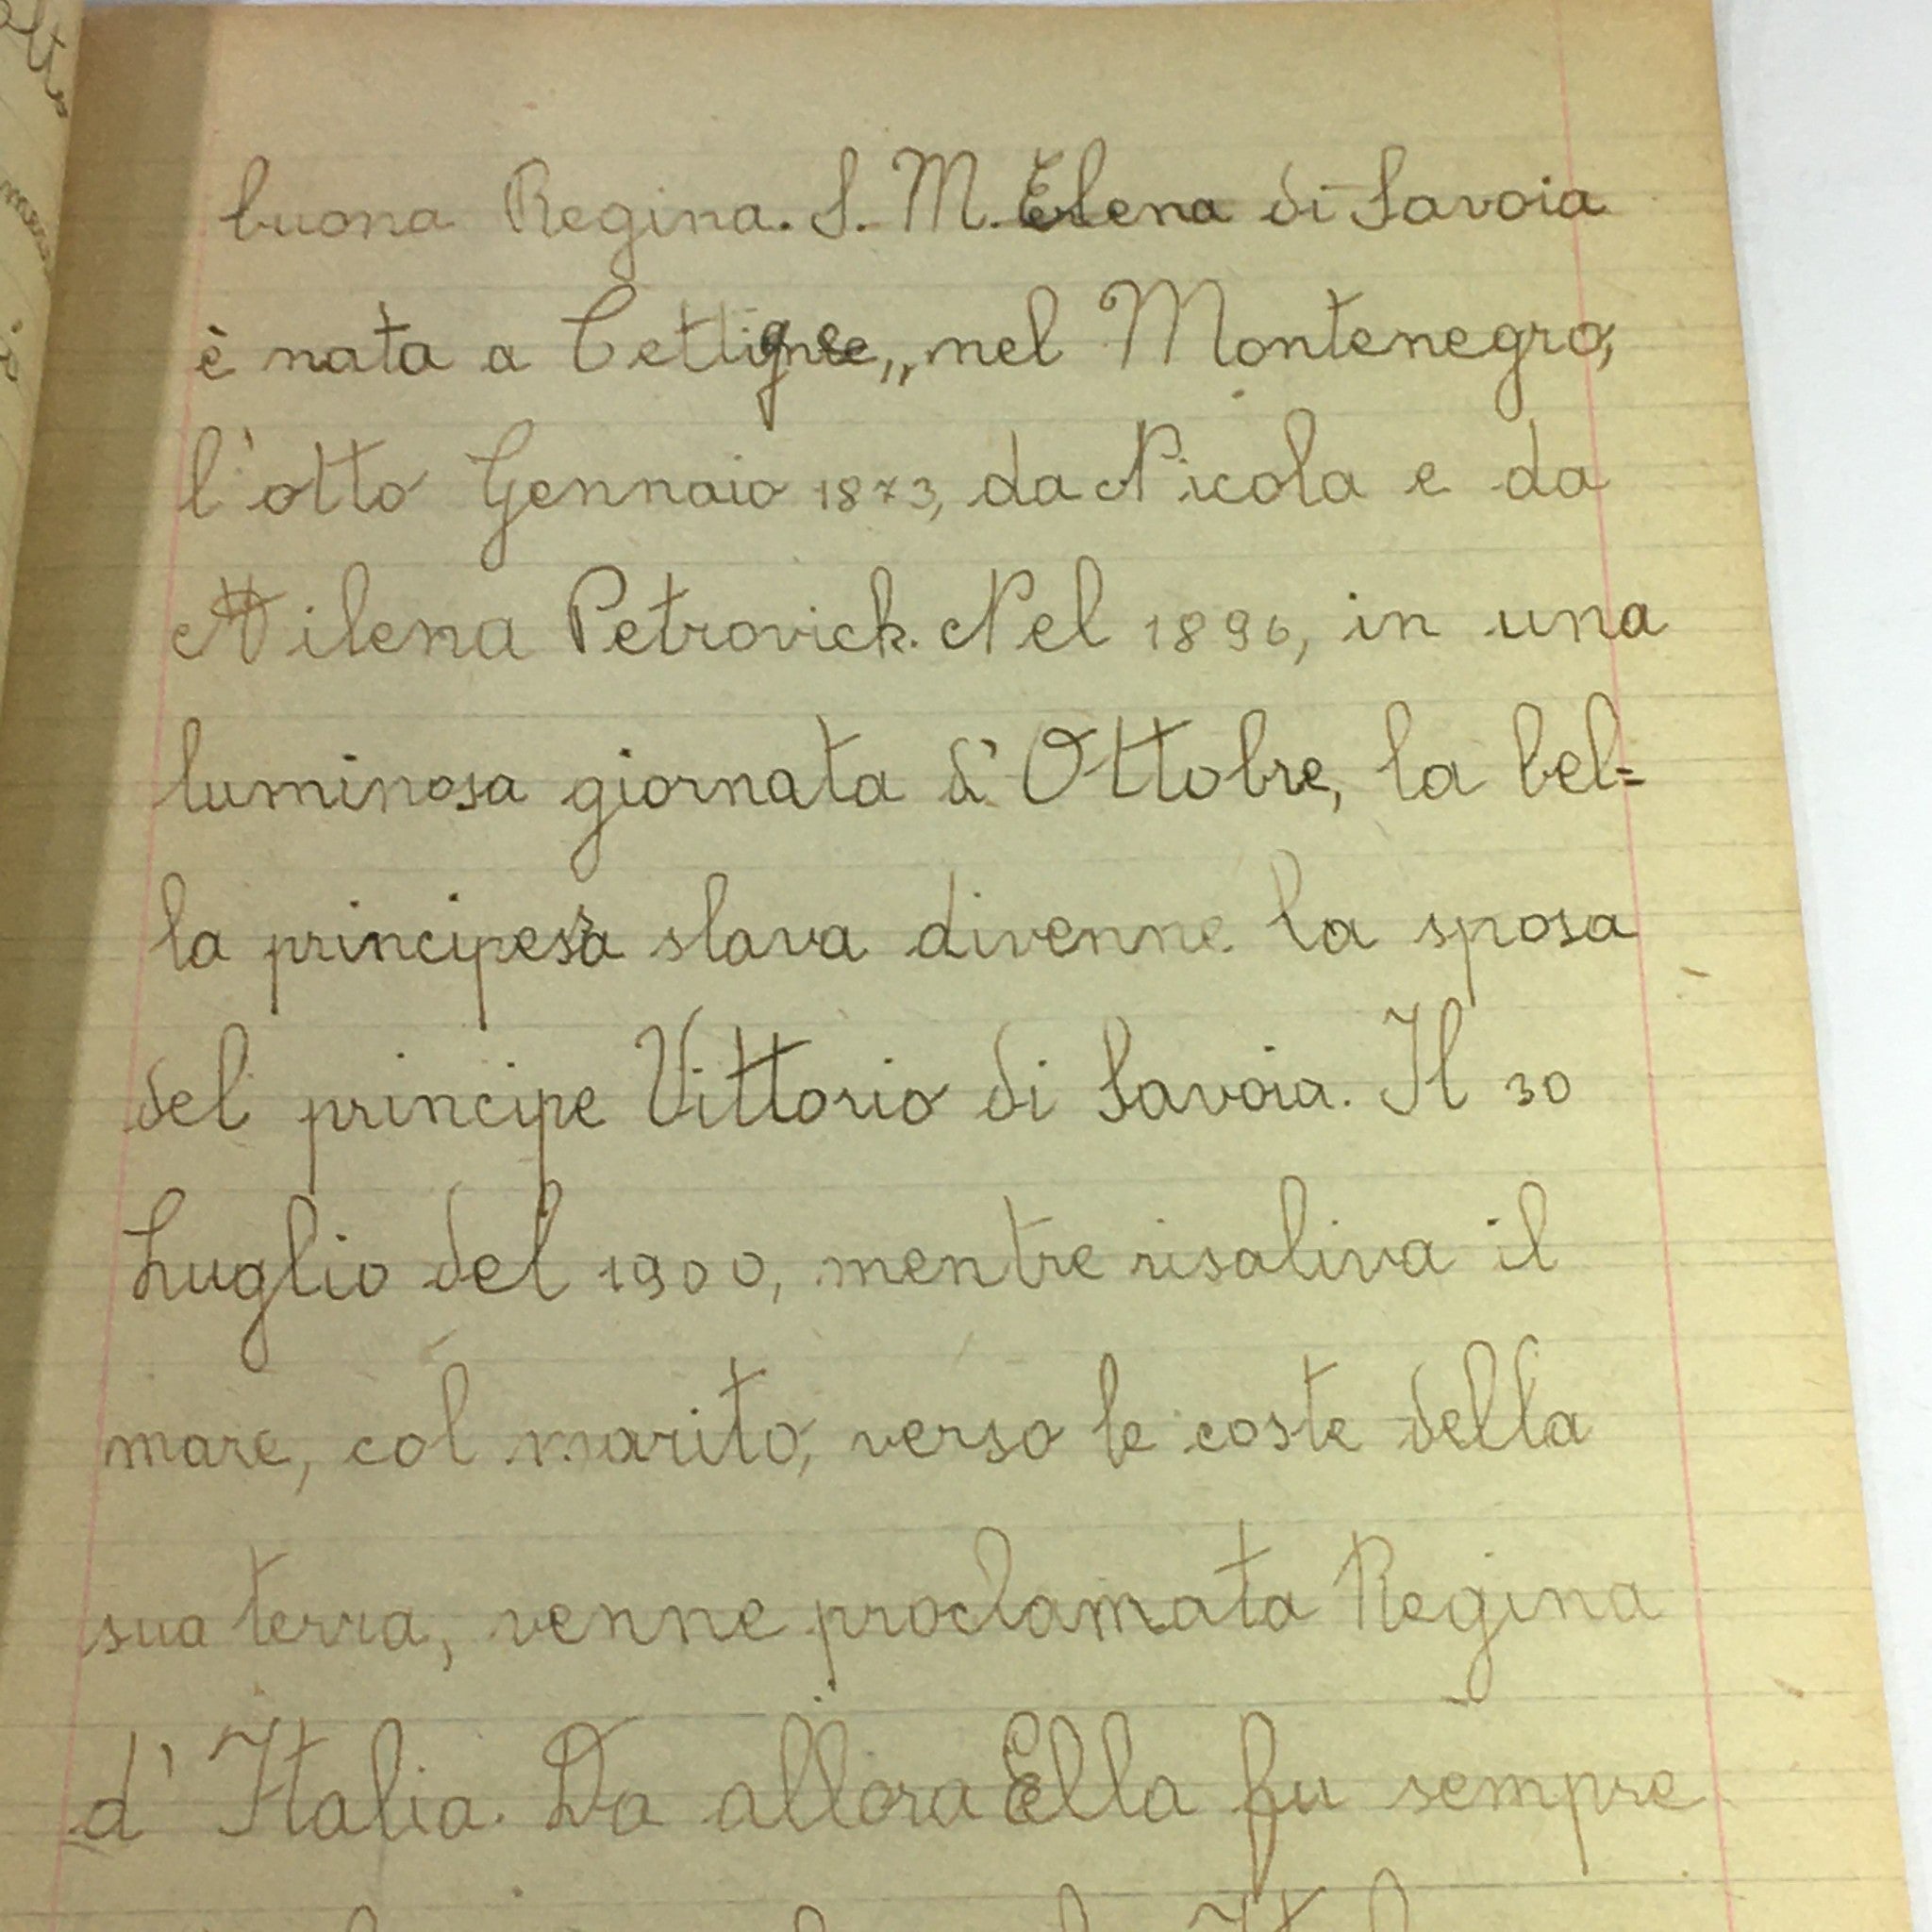 buona Regina. S. M. Elena di Savoia
è nata a Cettigne,, nel Montenegro,
l'otto Gennaio 1873, da Nicola e da
Milena Petrovick. Nel 1896, in una
luminosa giornata d'Ottobre, la bel=
la principessa slava divenne la sposa
del principe Vittorio di Savoia. Il 30
Luglio del 1900, mentre risaliva il
mare, col marito, verso le coste della
sua terra, venne proclamata Regina
d'Italia. Da allora Ella fu sempre